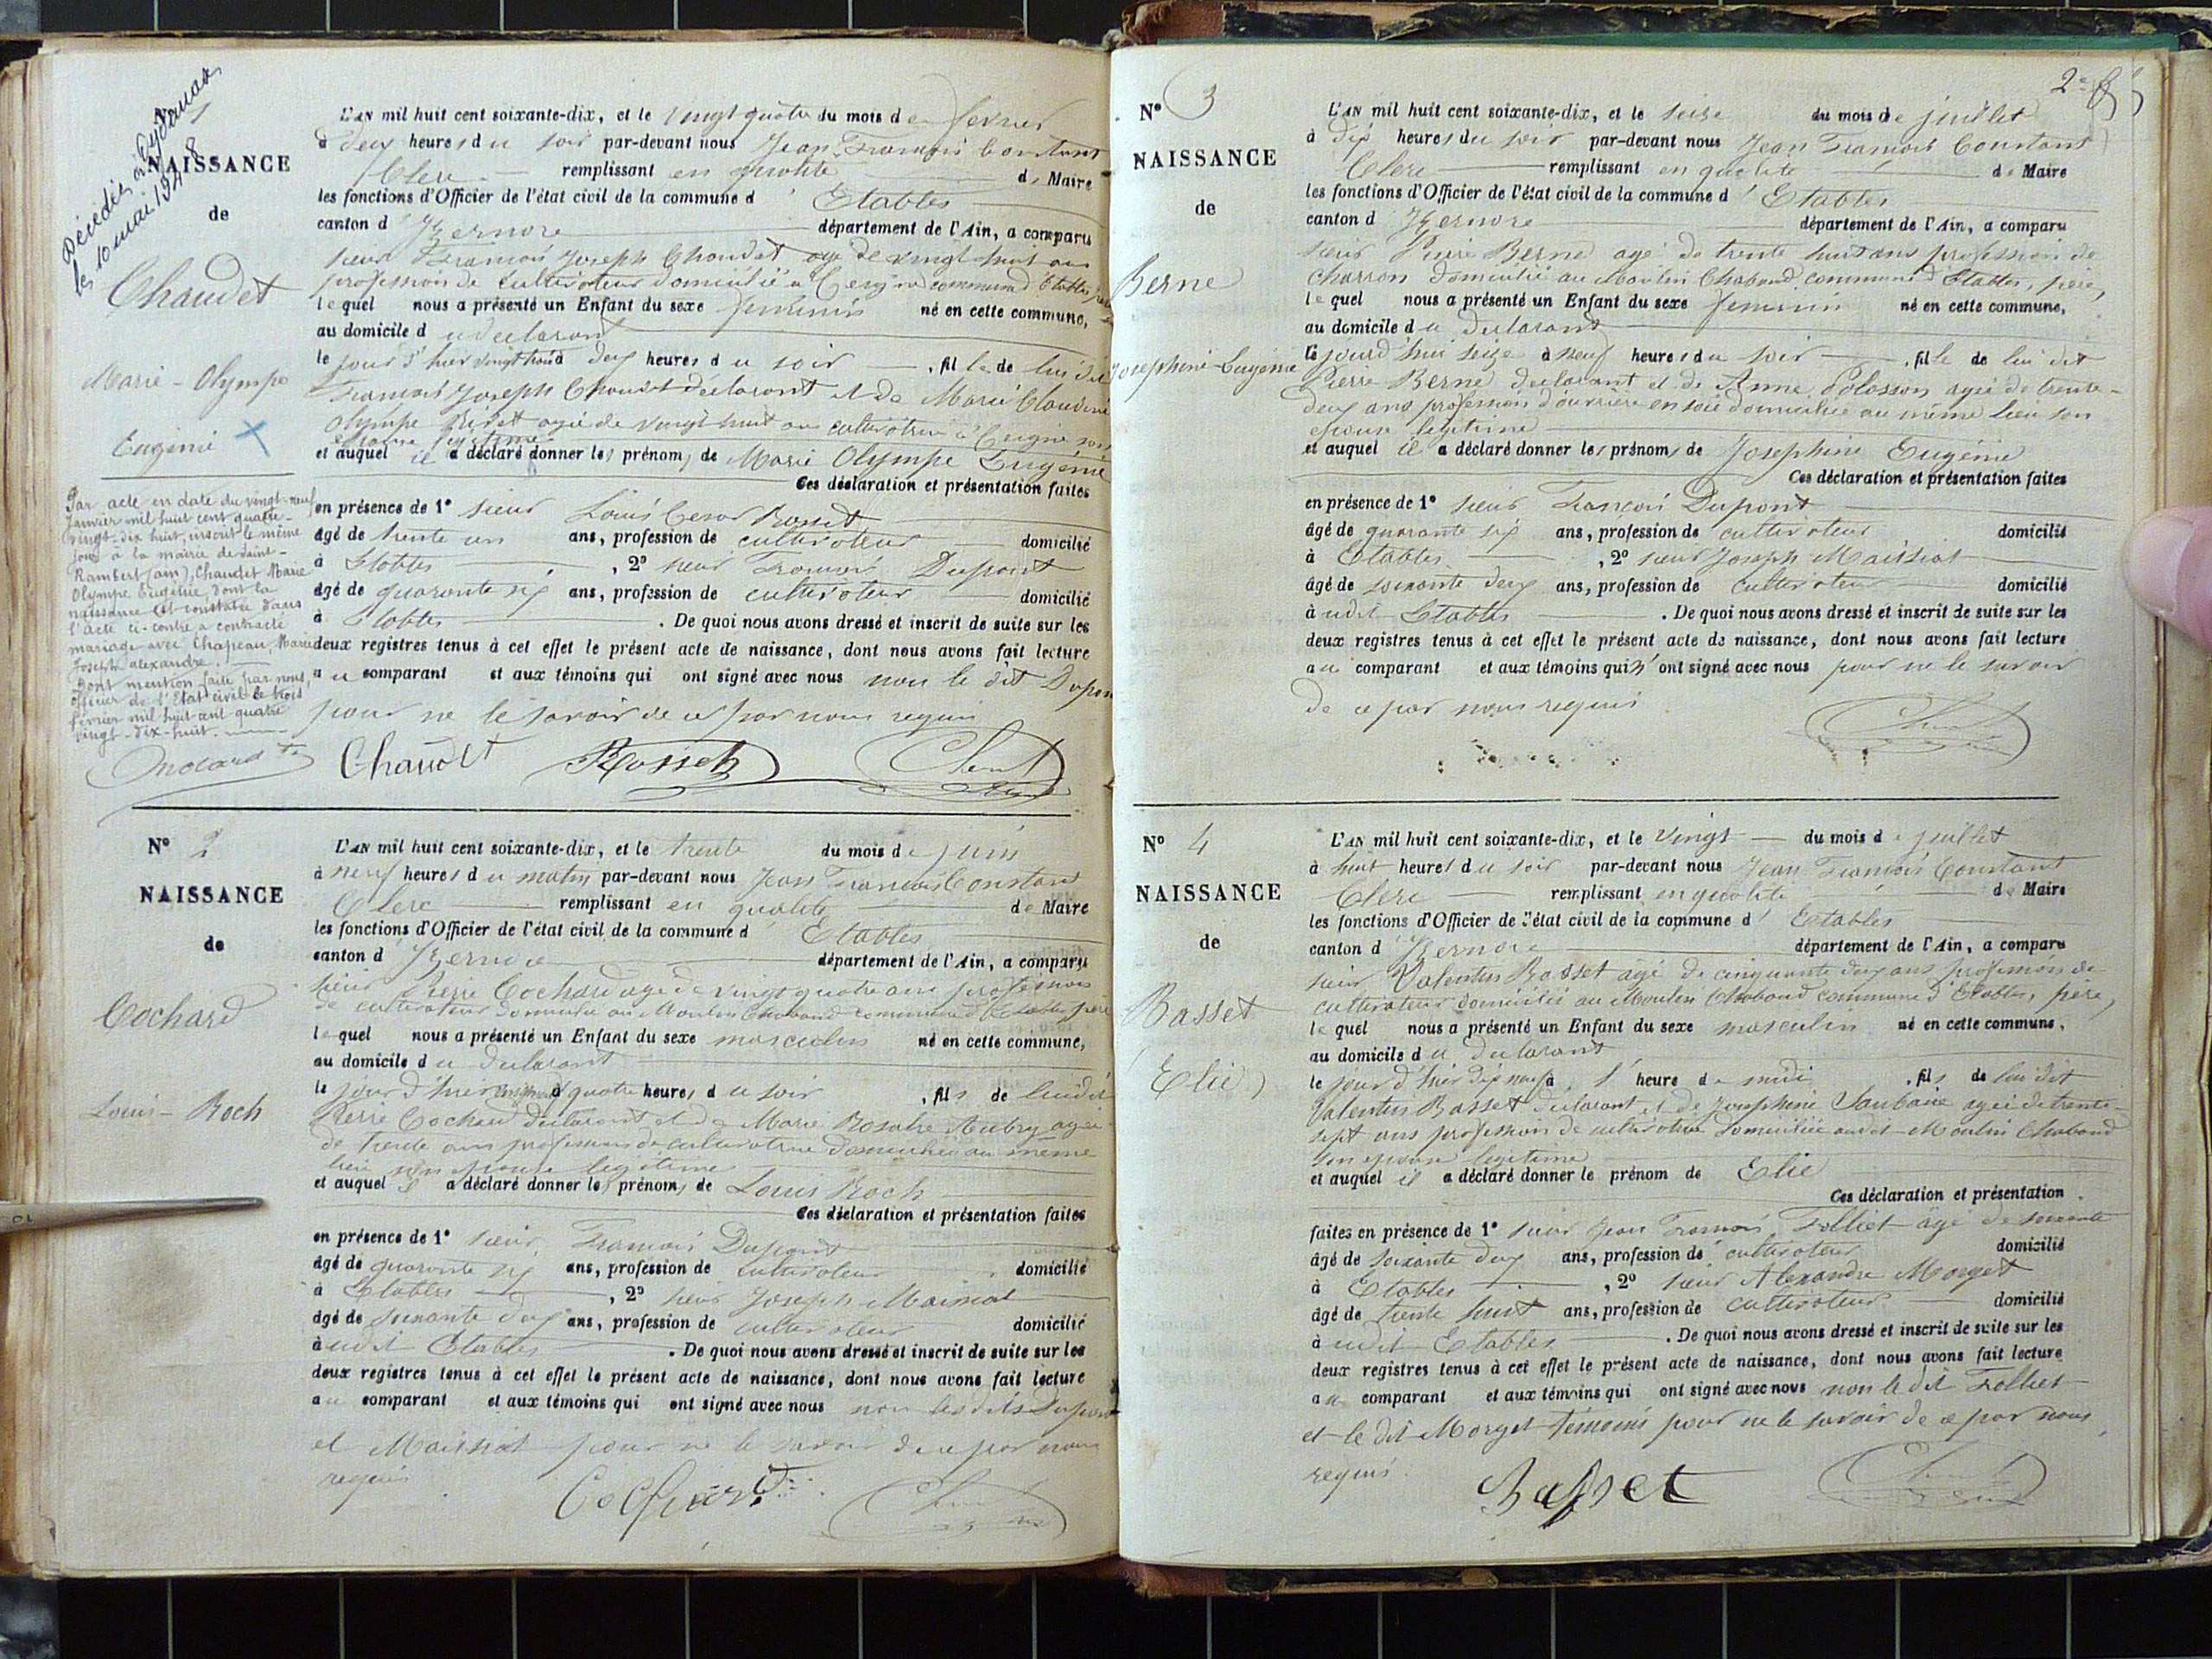 Décédée à Oyonnax
le 10 mai 1948
N° 1
NAISSANCE
de
Chaudet
Marie-Olympe
Eugénie
Par acte en date du vingt-neuf
Janvier mil huit cent quatre-
vingt-dix huit, inscrit le même
jour à la mairie de Saint-
Rambert (ain), Chaudet Marie
Olympe Eugénie, dont la
naissance est constatée dans
l'acte ci-contre a contracté
mariage avec Chapeau Marie
Joseph alexandre.
Dont mention faite par nous,
officier de l'Etat civil le trois
février mil huit cent quatre
vingt-dix-huit.
L'AN mil huit cent soixante-dix, et le vingt quatre du mois de fevrier
à deux heures du soir par-devant nous Jean François Constant
Clerc remplissant en qualité de Maire
les fonctions d'Officier de l'état civil de la commune d' Etables
canton d' Izernore département de l'Ain, a comparu
sieur François Joseph Chaudet agé de vingt huit ans
profession de cultivateur domicilié à Ceignes commune d'Etables
lequel nous a présenté un Enfant du sexe feminin né en cette commune,
au domicile du declarant
le jour d'hier vingt trois à deux heures du soir , fille de lui dit
François Joseph Chaudet declarant et de Marie Claudine
Olympe agée de vingt huit ans cultivatrice à son
epouse legitime
et auquel il a déclaré donner les prénoms de Marie Olympe Eugénie
Ces déclaration et présentation faites
en présence de 1° sieur Louis Cesar Rosset
âgé de trente un ans, profession de cultivateur domicilié
à Etables , 2° sieur François Dupont
âgé de quarante six ans, profession de cultivateur domicilié
à Etables . De quoi nous avons dressé et inscrit de suite sur les
deux registres tenus à cet effet le présent acte de naissance, dont nous avons fait lecture
au comparant et aux témoins qui ont signé avec nous non le dit Dupont
pour ne le savoir de ce par nous requis
Chaudet Rosset Clerc
N° 2
NAISSANCE
de
Cochard
Louis-Roch
L'AN mil huit cent soixante-dix, et le trente du mois de juin
à neuf heures du matin par-devant nous Jean François Constant
Clerc remplissant en qualité de Maire
les fonctions d'Officier de l'état civil de la commune d' Etables
canton d' Izernore département de l'Ain, a comparu
sieur Pierre Cochard age de vingt quatre ans profession
de cultivateur domicilié au Moulin Chaboud commune d'Etables père
lequel nous a présenté un Enfant du sexe masculin né en cette commune,
au domicile du declarant
le jour d'hier vingt neuf à quatre heures du soir , fils de lui dit
Pierre Cochard declarant et de Marie Rosalie Aubry agée
de trente ans profession de cultivatrice domiciliée au même
lieu son epouse legitime
et auquel il a déclaré donner les prénoms de Louis Roch
Ces déclaration et présentation faites
en présence de 1° sieur François Dupont
âgé de quarante six ans, profession de cultivateur domicilié
à Etables , 2° sieur Joseph Maissiat
âgé de soixante deux ans, profession de cultivateur domicilié
à udit Etables . De quoi nous avons dressé et inscrit de suite sur les
deux registres tenus à cet effet le présent acte de naissance, dont nous avons fait lecture
au comparant et aux témoins qui ont signé avec nous non les dits Dupont
et Maissiat pour ne le savoir de ce par nous
requis
Cochard Clerc
2e
N° 3
NAISSANCE
de
Berne
Josephine-Eugénie
L'AN mil huit cent soixante-dix, et le seize du mois de juillet
à dix heures du soir par-devant nous Jean François Constant
Clerc remplissant en qualité de Maire
les fonctions d'Officier de l'état civil de la commune d' Etables
canton d' Izernore département de l'Ain, a comparu
sieur Pierre Berne agé de trente huit ans profession de
charron domicilié au Moulin Chaboud commune d'Etables, père,
lequel nous a présenté un Enfant du sexe feminin né en cette commune,
au domicile du declarant
le jourd'hui seize à neuf heures du soir , fille de lui dit
Pierre Berne declarant et de Anne Polosson agée de trente-
deux ans profession d'ouvrière en soie domiciliée au même lieu son
epouse legitime
et auquel il a déclaré donner les prénoms de Josephine Eugénie
Ces déclaration et présentation faites
en présence de 1° sieur François Dupont
âgé de quarante six ans, profession de cultivateur domicilié
à Etables , 2° sieur Joseph Maissiat
âgé de soixante deux ans, profession de cultivateur domicilié
à udit Etables . De quoi nous avons dressé et inscrit de suite sur les
deux registres tenus à cet effet le présent acte de naissance, dont nous avons fait lecture
au comparant et aux témoins qui n'ont signé avec nous pour ne le savoir
de ce par nous requis
Clerc
N° 4
NAISSANCE
de
Basset
Elie
L'AN mil huit cent soixante-dix, et le vingt du mois de juillet
à huit heures du soir par-devant nous Jean François Constant
Clerc remplissant en qualité de Maire
les fonctions d'Officier de l'état civil de la commune d' Etables
canton d' Izernore département de l'Ain, a comparu
sieur Valentin Basset âgé de cinquante deux ans profession de
cultivateur domicilié au Moulin Chaboud commune d'Etables, père,
lequel nous a présenté un Enfant du sexe masculin né en cette commune,
au domicile du declarant
le jour d'hier dix neuf à l' heure de midi , fils de lui dit
Valentin Basset declarant et de Josephine agée de trente-
sept ans profession de cultivatrice domiciliée audit Moulin Chaboud
son epouse legitime
et auquel il a déclaré donner le prénom de Elie
Ces déclaration et présentation
faites en présence de 1° sieur Jean François Folliet âgé de soixante
âgé de soixante deux ans, profession de cultivateur domicilié
à Etables , 2° sieur Alexandre Morget
âgé de trente huit ans, profession de cultivateur domicilié
à udit Etables . De quoi nous avons dressé et inscrit de suite sur les
deux registres tenus à cet effet le présent acte de naissance, dont nous avons fait lecture
au comparant et aux témoins qui ont signé avec nous non le dit Folliet
et le dit Morget témoins pour ne le savoir de ce par nous
requis.
Basset Clerc